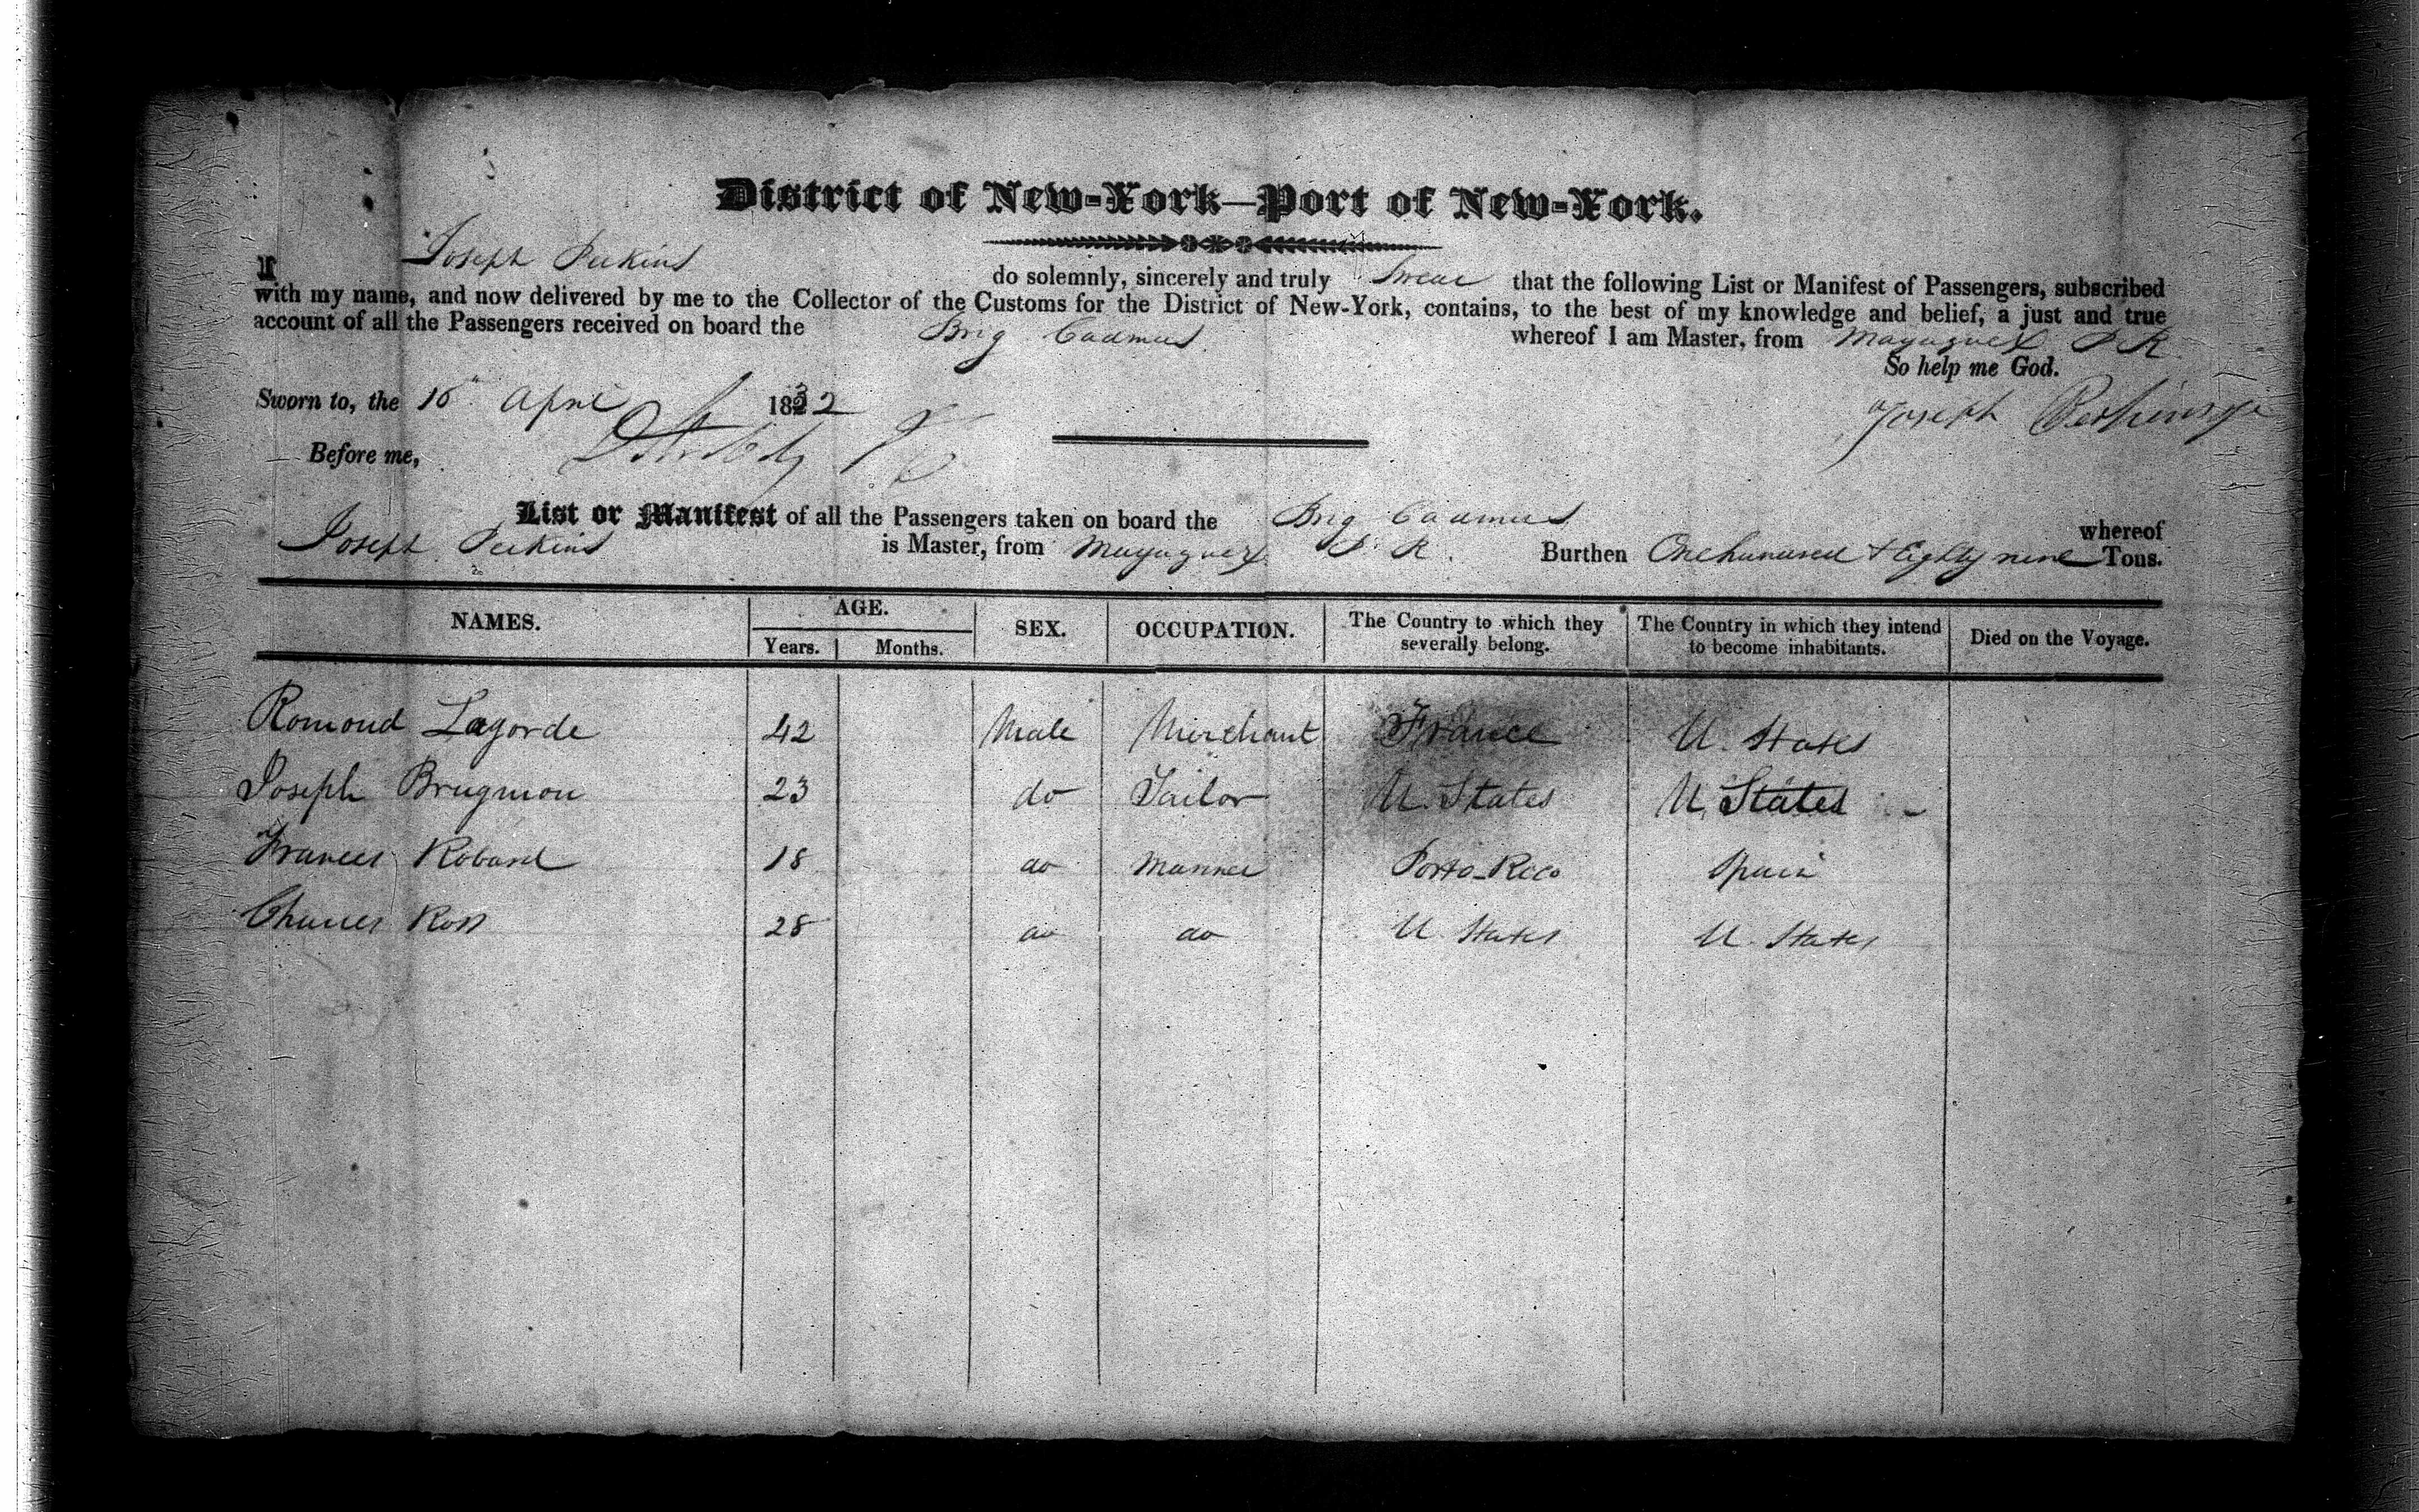 District of New-York—Port of New-York.
I Joseph Perkins do solemnly, sincerely and truly Swear that the following List or Manifest of Passengers, subscribed
with my name, and now delivered by me to the Collector of the Customs for the District of New-York, contains, to the best of my knowledge and belief, a just and true
account of all the Passengers received on board the Brig Cadmus whereof I am Master, from Mayaguez P. R.
So help me God.
Sworn to, the April 1832
Joseph Perkins
Before me,
List or Manifest of all the Passengers taken on board the Brig Cadmus whereof
Joseph Perkins is Master, from Mayaguez P. R. Burthen One hundred & Eighty nine Tons.
NAMES. AGE. Years. Months. SEX. OCCUPATION. The Country to which they severally belong. The Country in which they intend to become inhabitants. Died on the Voyage.
Romond Lagorde 42 Male Merchant France U. States
Joseph Brugmon 23 do Tailor U. States U. States
Frances Roband 18 do Mariner Porto-Rico Spain
Charles Ross 28 do do U States U. States